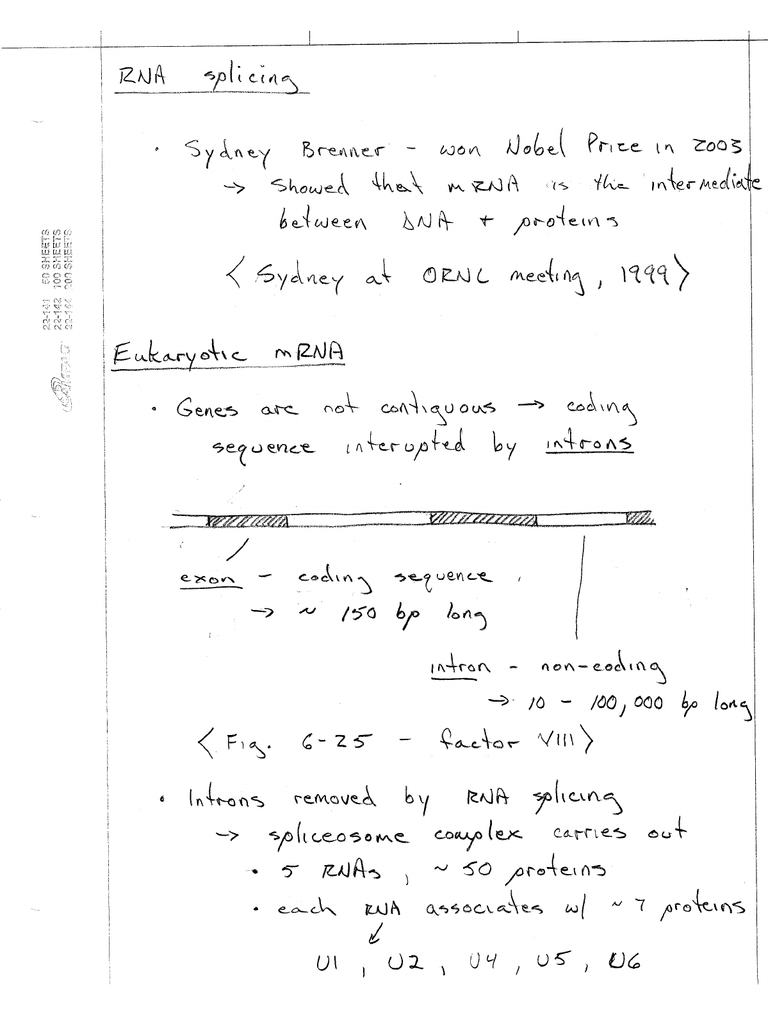 RNA splicing
· Sydney Brenner - won Nobel Price in 2003
→ Showed that mRNA is the intermediate
between DNA + proteins
< Sydney at ORNL meeting, 1999 >
22-141 50 SHEETS
22-142 100 SHEETS
22-144 200 SHEETS
Eukaryotic mRNA
· Genes are not contiguous → coding
sequence interupted by introns
exon - coding sequence
→ ~ 150 bp long
intron - non-coding
→ 10 - 100,000 bp long
< Fig. 6-25 - factor VIII >
· Introns removed by RNA splicing
→ spliceosome complex carries out
· 5 RNAs, ~ 50 proteins
· each RNA associates w/ ~ 7 proteins
U1, U2, U4, U5, U6